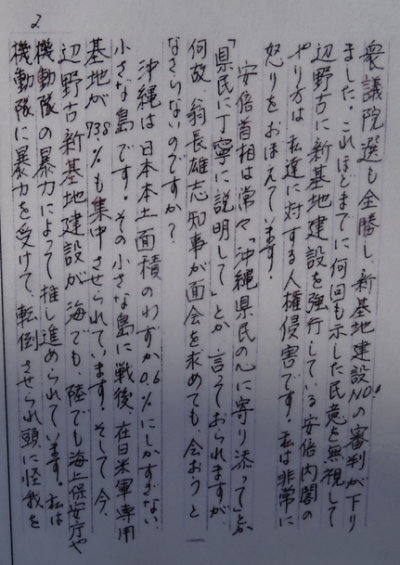 2
衆議院選も全勝し、新基地建設NO!の審判が下り
ました。これほどまでに何回も示した民意を無視して
辺野古に新基地建設を強行している安倍内閣の
やり方は私達に対する人権侵害です。私は非常に
怒りをおぼえています。
安倍首相は常々「沖縄県民の心に寄り添って」とか
「県民に丁寧に説明して」とか言っておられますが、
何故、翁長雄志知事が面会を求めても会おうと
なさらないのですか?
沖縄は日本本土面積のわずか0.6%にしかすぎない
小さな島です。その小さな島に戦後、在日米軍専用
基地が73.8%も集中させられています。そして今、
辺野古新基地建設が海でも、陸でも海上保安庁や
機動隊の暴力によって推し進められています。私は
機動隊に暴力を受けて、転倒させられ頭に怪我を